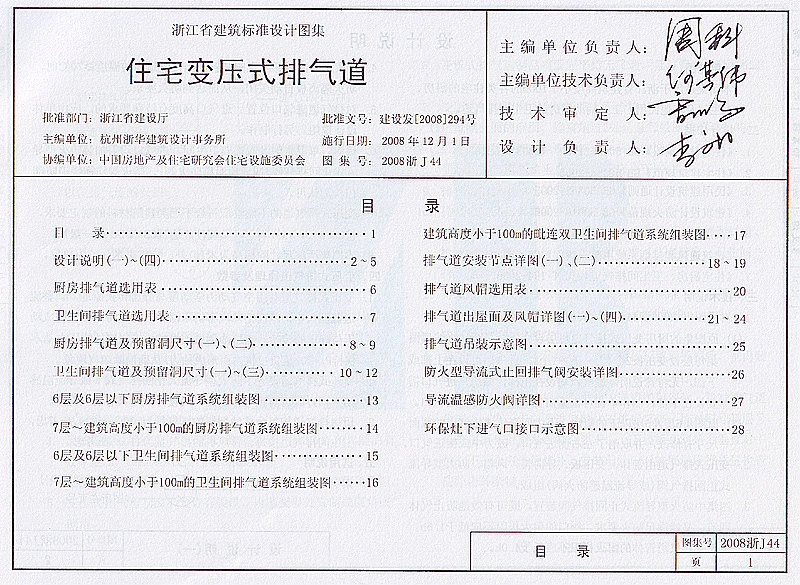 浙江省建筑标准设计图集
住宅变压式排气道
批准部门：浙江省建设厅
批准文号：建设发[2008]294号
主编单位：杭州浙华建筑设计事务所
施行日期：2008年12月1日
协编单位：中国房地产及住宅研究会住宅设施委员会
图集号：2008浙J44
主编单位负责人：
主编单位技术负责人：
技术审定人：
设计负责人：
目 录
目 录 1
设计说明(一)~(四) 2~5
厨房排气道选用表 6
卫生间排气道选用表 7
厨房排气道及预留洞尺寸(一)、(二) 8~9
卫生间排气道及预留洞尺寸(一)~(三) 10~12
6层及6层以下厨房排气道系统组装图 13
7层~建筑高度小于100m的厨房排气道系统组装图 14
6层及6层以下卫生间排气道系统组装图 15
7层~建筑高度小于100m的卫生间排气道系统组装图 16
建筑高度小于100m的毗连双卫生间排气道系统组装图 17
排气道安装节点详图(一)、(二) 18~19
排气道风帽选用表 20
排气道出屋面及风帽详图(一)~(四) 21~24
排气道吊装示意图 25
防火型导流式止回排气阀安装详图 26
导流温感防火阀详图 27
环保灶下进气口接口示意图 28
目 录
图集号 2008浙J44
页 1